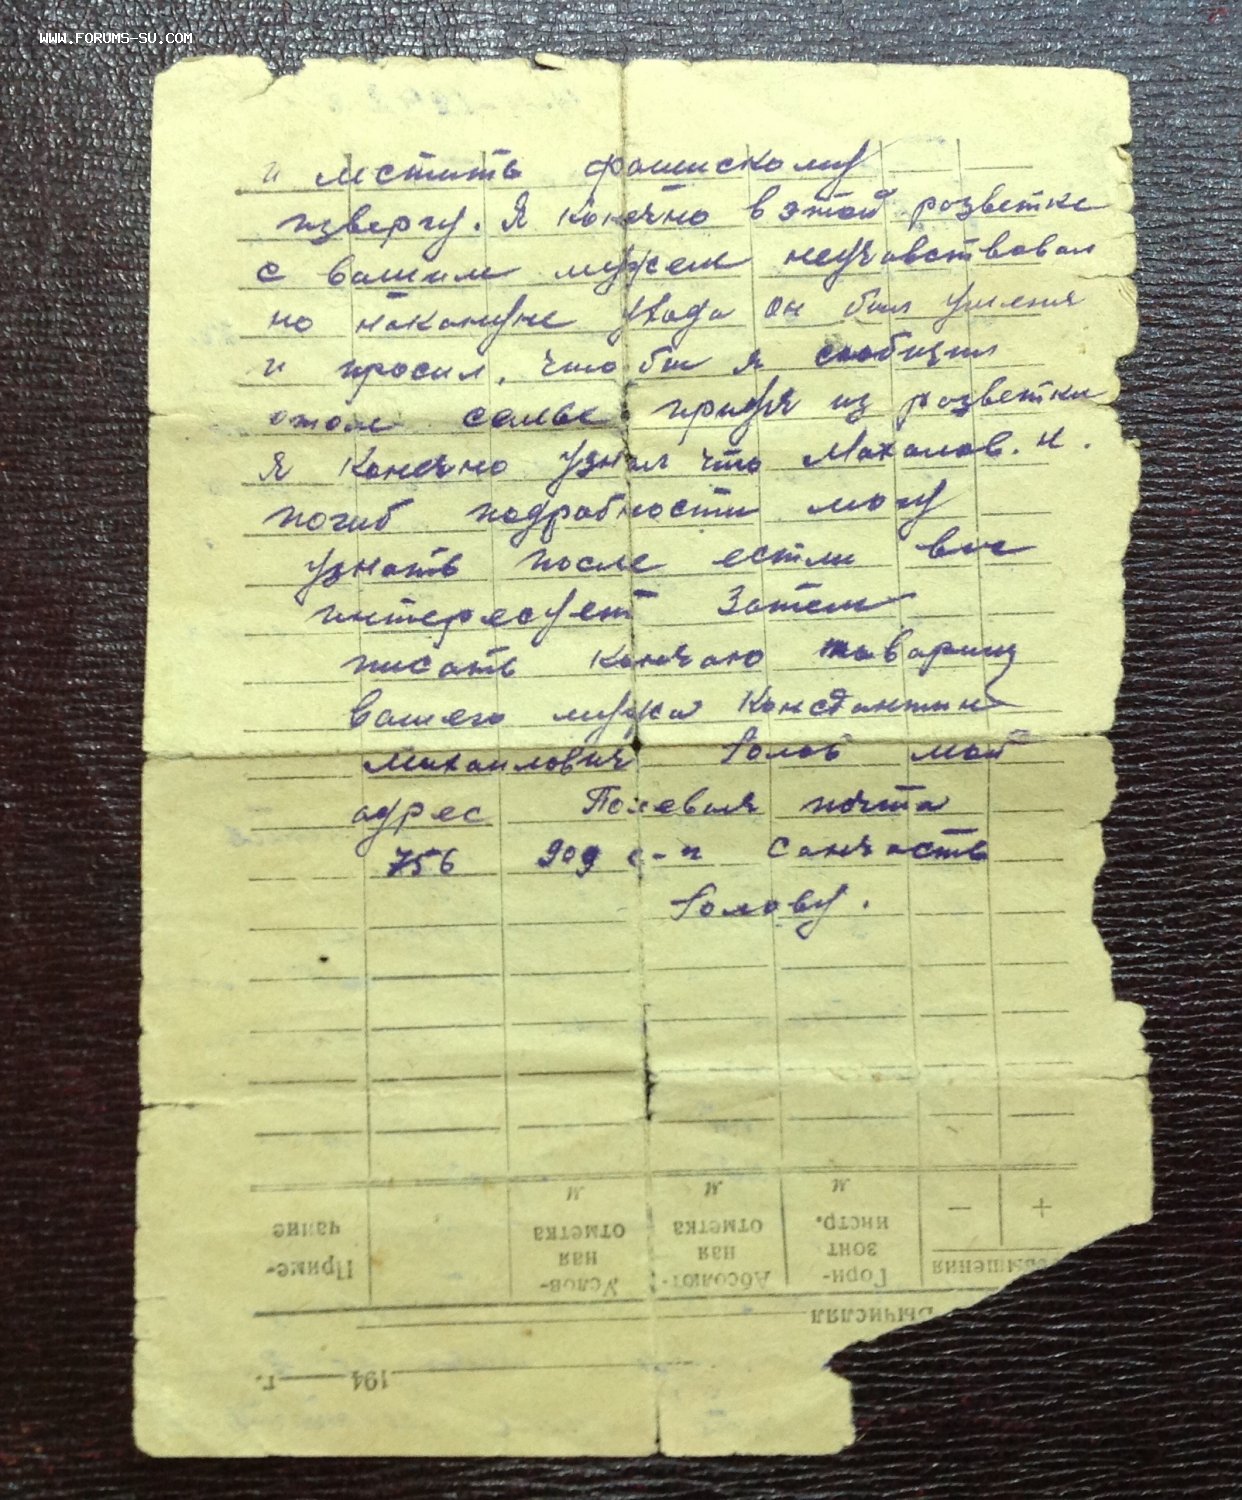 WWW.FORUMS-SU.COM
и мстить фашискому
извергу. Я конечно в этой розветке
с вашим мужем неучавствовал
но наконуне когда он был уменя
и просил, что бы я сообщил
отом семье придя из розветки
я конечно узнал что Махалов. Н.
погиб подробности могу
узнать после естли вас
интересует Затем
писать кончаю товарищ
вашего мужа Константин
Михаилович Голов мой
адрес Полевая почта
756 909 с-п Санчасть
Голову.
Приме-
чание
Услов-
ная
отметка
м
Абсолют-
ная
отметка
м
Гори-
зонт
инстр.
м
вышения
− +
Вычислял
194 г.